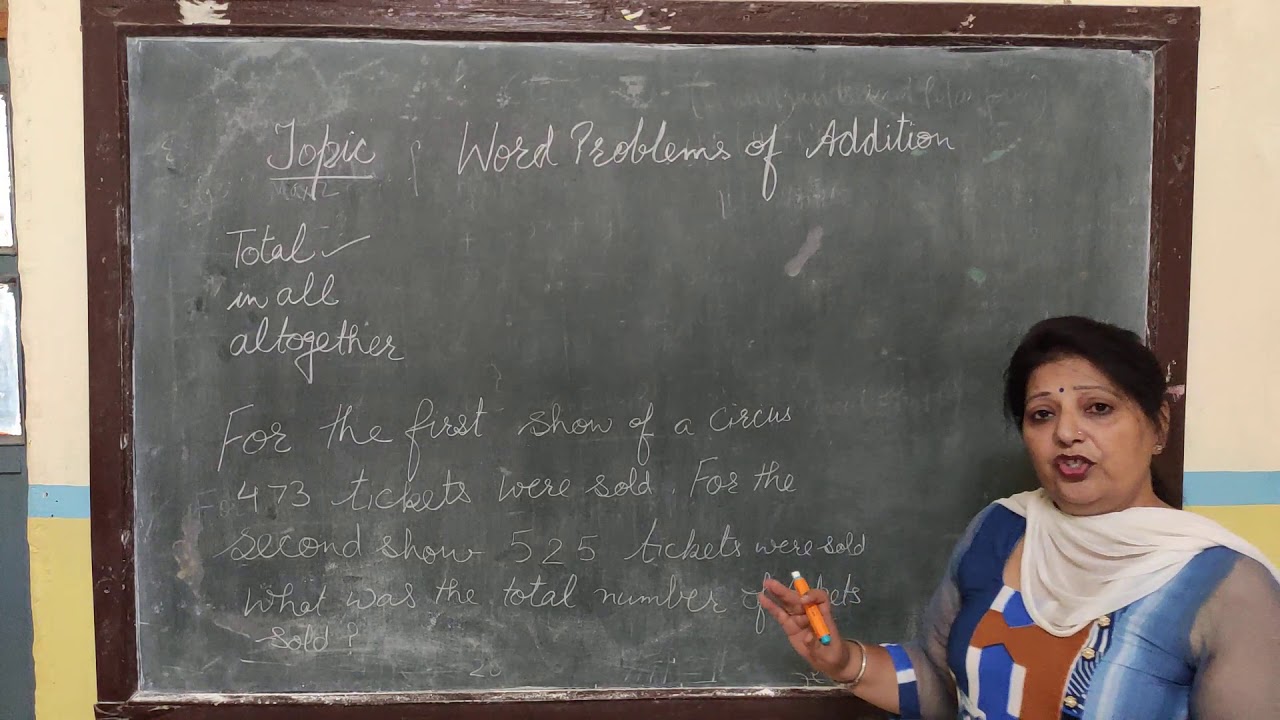 Topic Word Problems of Addition
Total
in all
altogether
For the first show of a circus
473 tickets were sold. For the
second show 525 tickets were sold
What was the total number of
sold?
20